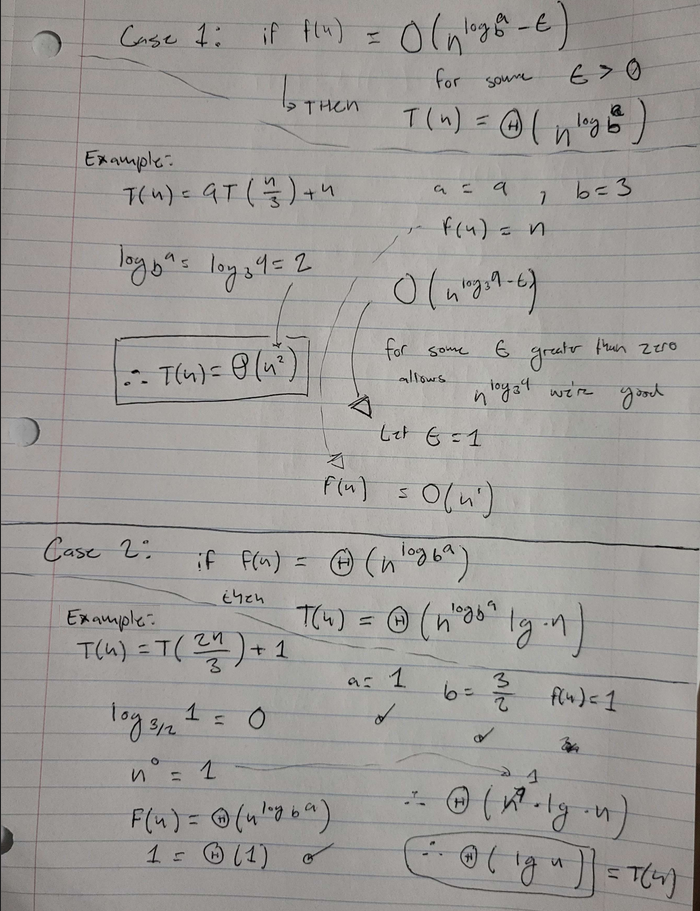 Case 1: if f(n) = O(n^(log_b a - ε))
for some ε > 0
↳ THEN T(n) = Θ(n^(log_b a))
Example:
T(n) = 9T(n/3) + n a = 9, b = 3
f(n) = n
log_b a = log_3 9 = 2 O(n^(log_3 9 - ε))
for some ε greater than zero
∴ T(n) = Θ(n²) allows n^(log_3 9) we're good
Let ε = 1
f(n) = O(n¹)
Case 2: if f(n) = Θ(n^(log_b a))
then T(n) = Θ(n^(log_b a) lg · n)
Example:
T(n) = T(2n/3) + 1
a = 1 b = 3/2 f(n) = 1
✓ ✓
log_(3/2) 1 = 0
n⁰ = 1 → 1
F(n) = Θ(n^(log_b a)) ∴ Θ(n⁰ · lg · n)
1 = Θ(1) ✓ ∴ Θ(lg n) = T(n)